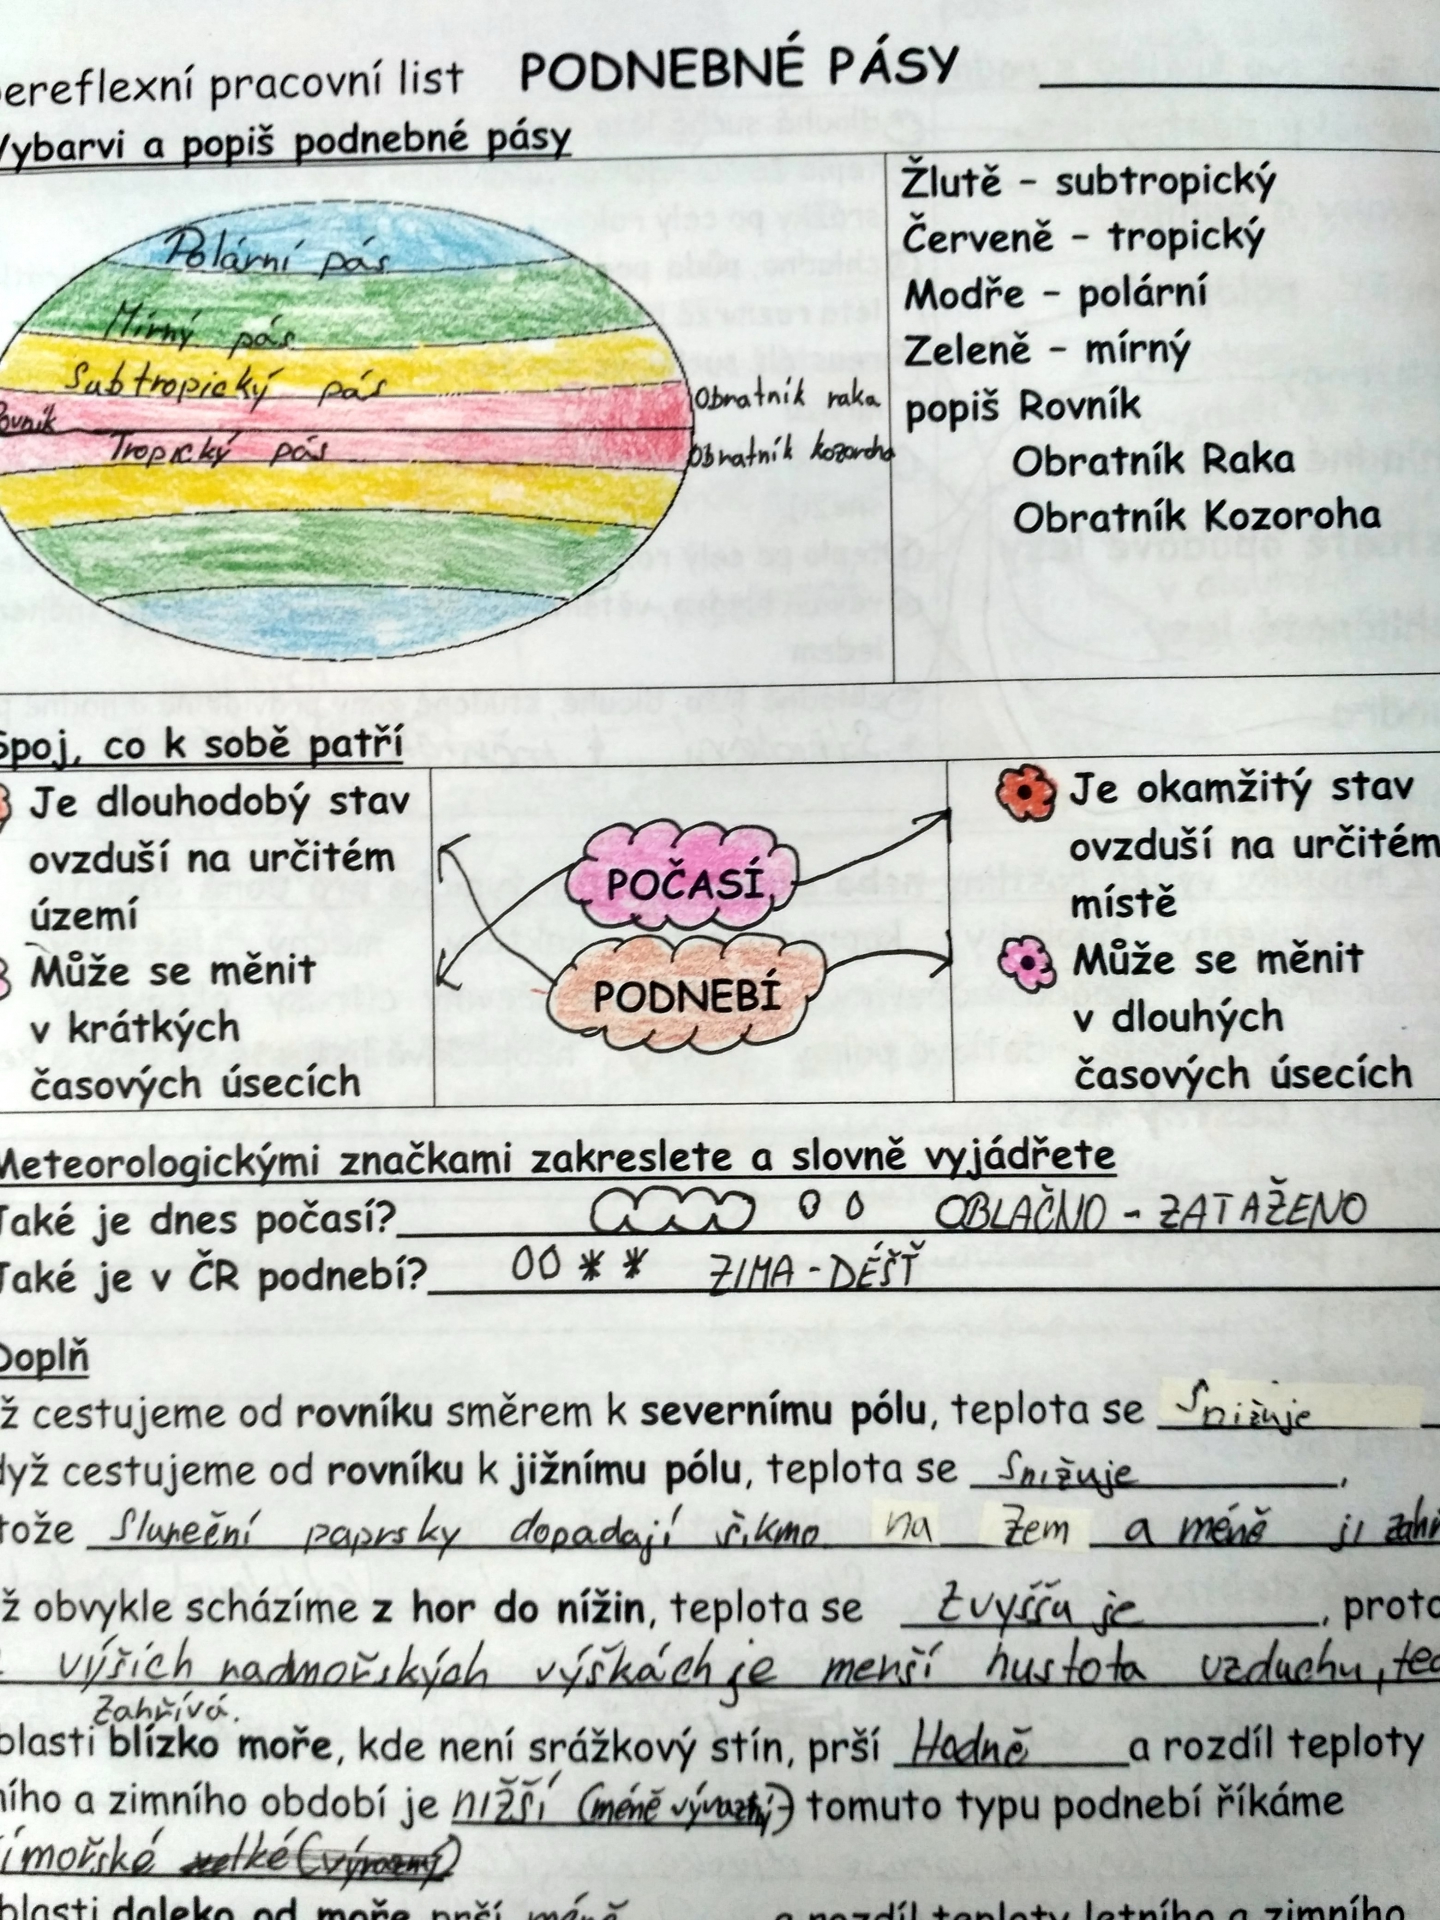 ereflexní pracovní list PODNEBNÉ PÁSY
Vybarvi a popiš podnebné pásy
Polární pás
Mírný pás
Subtropický pás
Rovník
Tropický pás
Obratník raka
Obratník kozoroha
Žlutě - subtropický
Červeně - tropický
Modře - polární
Zeleně - mírný
popiš Rovník
Obratník Raka
Obratník Kozoroha
Spoj, co k sobě patří
Je dlouhodobý stav
ovzduší na určitém
území
Může se měnit
v krátkých
časových úsecích
POČASÍ
PODNEBÍ
Je okamžitý stav
ovzduší na určitém
místě
Může se měnit
v dlouhých
časových úsecích
Meteorologickými značkami zakreslete a slovně vyjádřete
Jaké je dnes počasí? OBLAČNO - ZATAŽENO
Jaké je v ČR podnebí? ZIMA - DÉŠŤ
Doplň
ž cestujeme od rovníku směrem k severnímu pólu, teplota se Snižuje
dyž cestujeme od rovníku k jižnímu pólu, teplota se Snižuje,
tože Sluneční paprsky dopadají šikmo na Zem a méně ji zahř
ž obvykle scházíme z hor do nížin, teplota se Zvyššuje, proto
výšich nadmořských výškách je menší hustota vzduchu, teď
Zahřívá.
blasti blízko moře, kde není srážkový stín, prší Hodně a rozdíl teploty
ního a zimního období je nižší (méně výrazný) tomuto typu podnebí říkáme
ímořské velké (výrazný)
blasti daleko od moře prší méně a rozdíl teploty letního a zimního